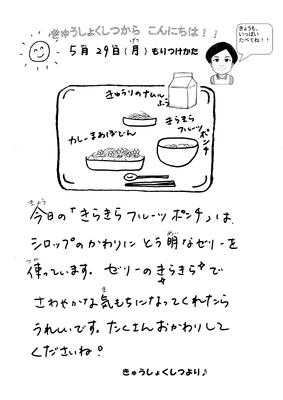 きゅうしょくしつから こんにちは!!
5月29日(月) もりつけかた
きょうも、
いっぱい
たべてね!!
きゅうりのナムル
ふう
きらきら
フルーツ
ポンチ
カレーまあぼどん
今日の「きらきらフルーツポンチ」は、
シロップのかわりに とう明なゼリーを
使っています。ゼリーのきらきらで
さわやかな気もちになってくれたら
うれしいです。たくさんおかわりして
くださいね!
きゅうしょくしつより♪